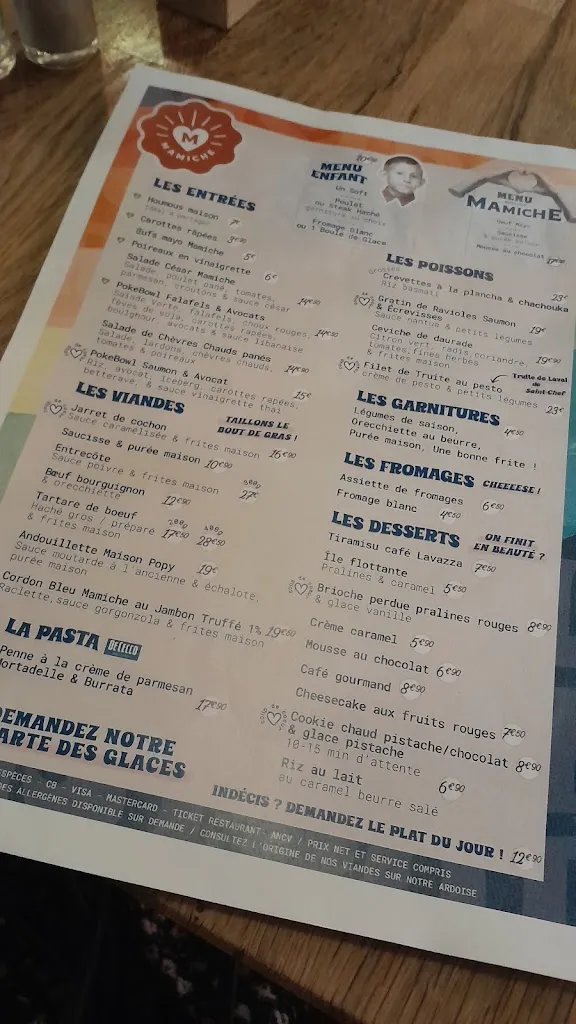 M
MAMICHE
LES ENTRÉES
Houmous maison 7€
Carottes râpées 3€90
Œufs mayo Mamiche 5€
Poireaux en vinaigrette 6€
Salade César Mamiche
Salade, poulet pané, tomates,
parmesan, croutons & sauce césar 14€90
PokeBowl Falafels & Avocats
Salade verte, falafels, choux rouges,
fèves de soja, carottes râpées, 14€90
boulghour, avocats & sauce libanaise
Salade de Chèvres Chauds panés
Salade, lardons, chèvres chauds,
tomates & poireaux 14€90
PokeBowl Saumon & Avocat
Riz, avocat, iceberg, carottes râpées,
betterave, & sauce vinaigrette thaï 15€
LES VIANDES
TAILLONS LE
BOUT DE GRAS !
Jarret de cochon
Sauce caramélisée & frites maison 16€90
Saucisse & purée maison 10€90
Entrecôte
Sauce poivre & frites maison 27€
Bœuf bourguignon
& orecchiette 12€90
Tartare de boeuf
Haché gros / préparé 17€50 28€50
& frites maison
Andouillette Maison Popy 19€
Sauce moutarde à l'ancienne & échalote,
purée maison
Cordon Bleu Mamiche au Jambon Truffé 1% 19€50
Raclette, sauce gorgonzola & frites maison
LA PASTA DE CECCO
Penne à la crème de parmesan
Mortadelle & Burrata 17€90
DEMANDEZ NOTRE
CARTE DES GLACES
MENU
ENFANT
10€90
Un Soft
Poulet
ou Steak Haché
garniture au choix
Fromage Blanc
ou 1 Boule de Glace
MENU
MAMICHE
Oeuf Mayo
Saucisse
& purée maison
Mousse au chocolat
LES POISSONS
Crevettes à la plancha & chachouka
Riz basmati 23€
Gratin de Ravioles Saumon
& Écrevisses 19€
Sauce nantua & petits légumes
Ceviche de daurade
Citron vert, radis, coriandre,
tomates, fines herbes 19€90
& frites maison
Filet de Truite au pesto
crème de pesto & petits légumes 23€
Truite du Laval
de
Saint-Chef
LES GARNITURES
Légumes de saison, 4€50
Orecchiette au beurre,
Purée maison, Une bonne frite !
LES FROMAGES CHEEEESE !
Assiette de fromages 6€50
Fromage blanc 4€50
LES DESSERTS
ON FINIT
EN BEAUTÉ ?
Tiramisu café Lavazza 7€50
Île flottante
Pralines & caramel 5€50
Brioche perdue pralines rouges 8€90
& glace vanille
Crème caramel 5€90
Mousse au chocolat 6€90
Café gourmand 8€90
Cheesecake aux fruits rouges 7€50
Cookie chaud pistache/chocolat 8€90
& glace pistache
10-15 min d'attente
Riz au lait 6€90
au caramel beurre salé
INDÉCIS ? DEMANDEZ LE PLAT DU JOUR ! 12€90
ESPÈCES - CB - VISA - MASTERCARD - TICKET RESTAURANT- ANCV / PRIX NET ET SERVICE COMPRIS
DES ALLERGÈNES DISPONIBLE SUR DEMANDE / CONSULTEZ L'ORIGINE DE NOS VIANDES SUR NOTRE ARDOISE